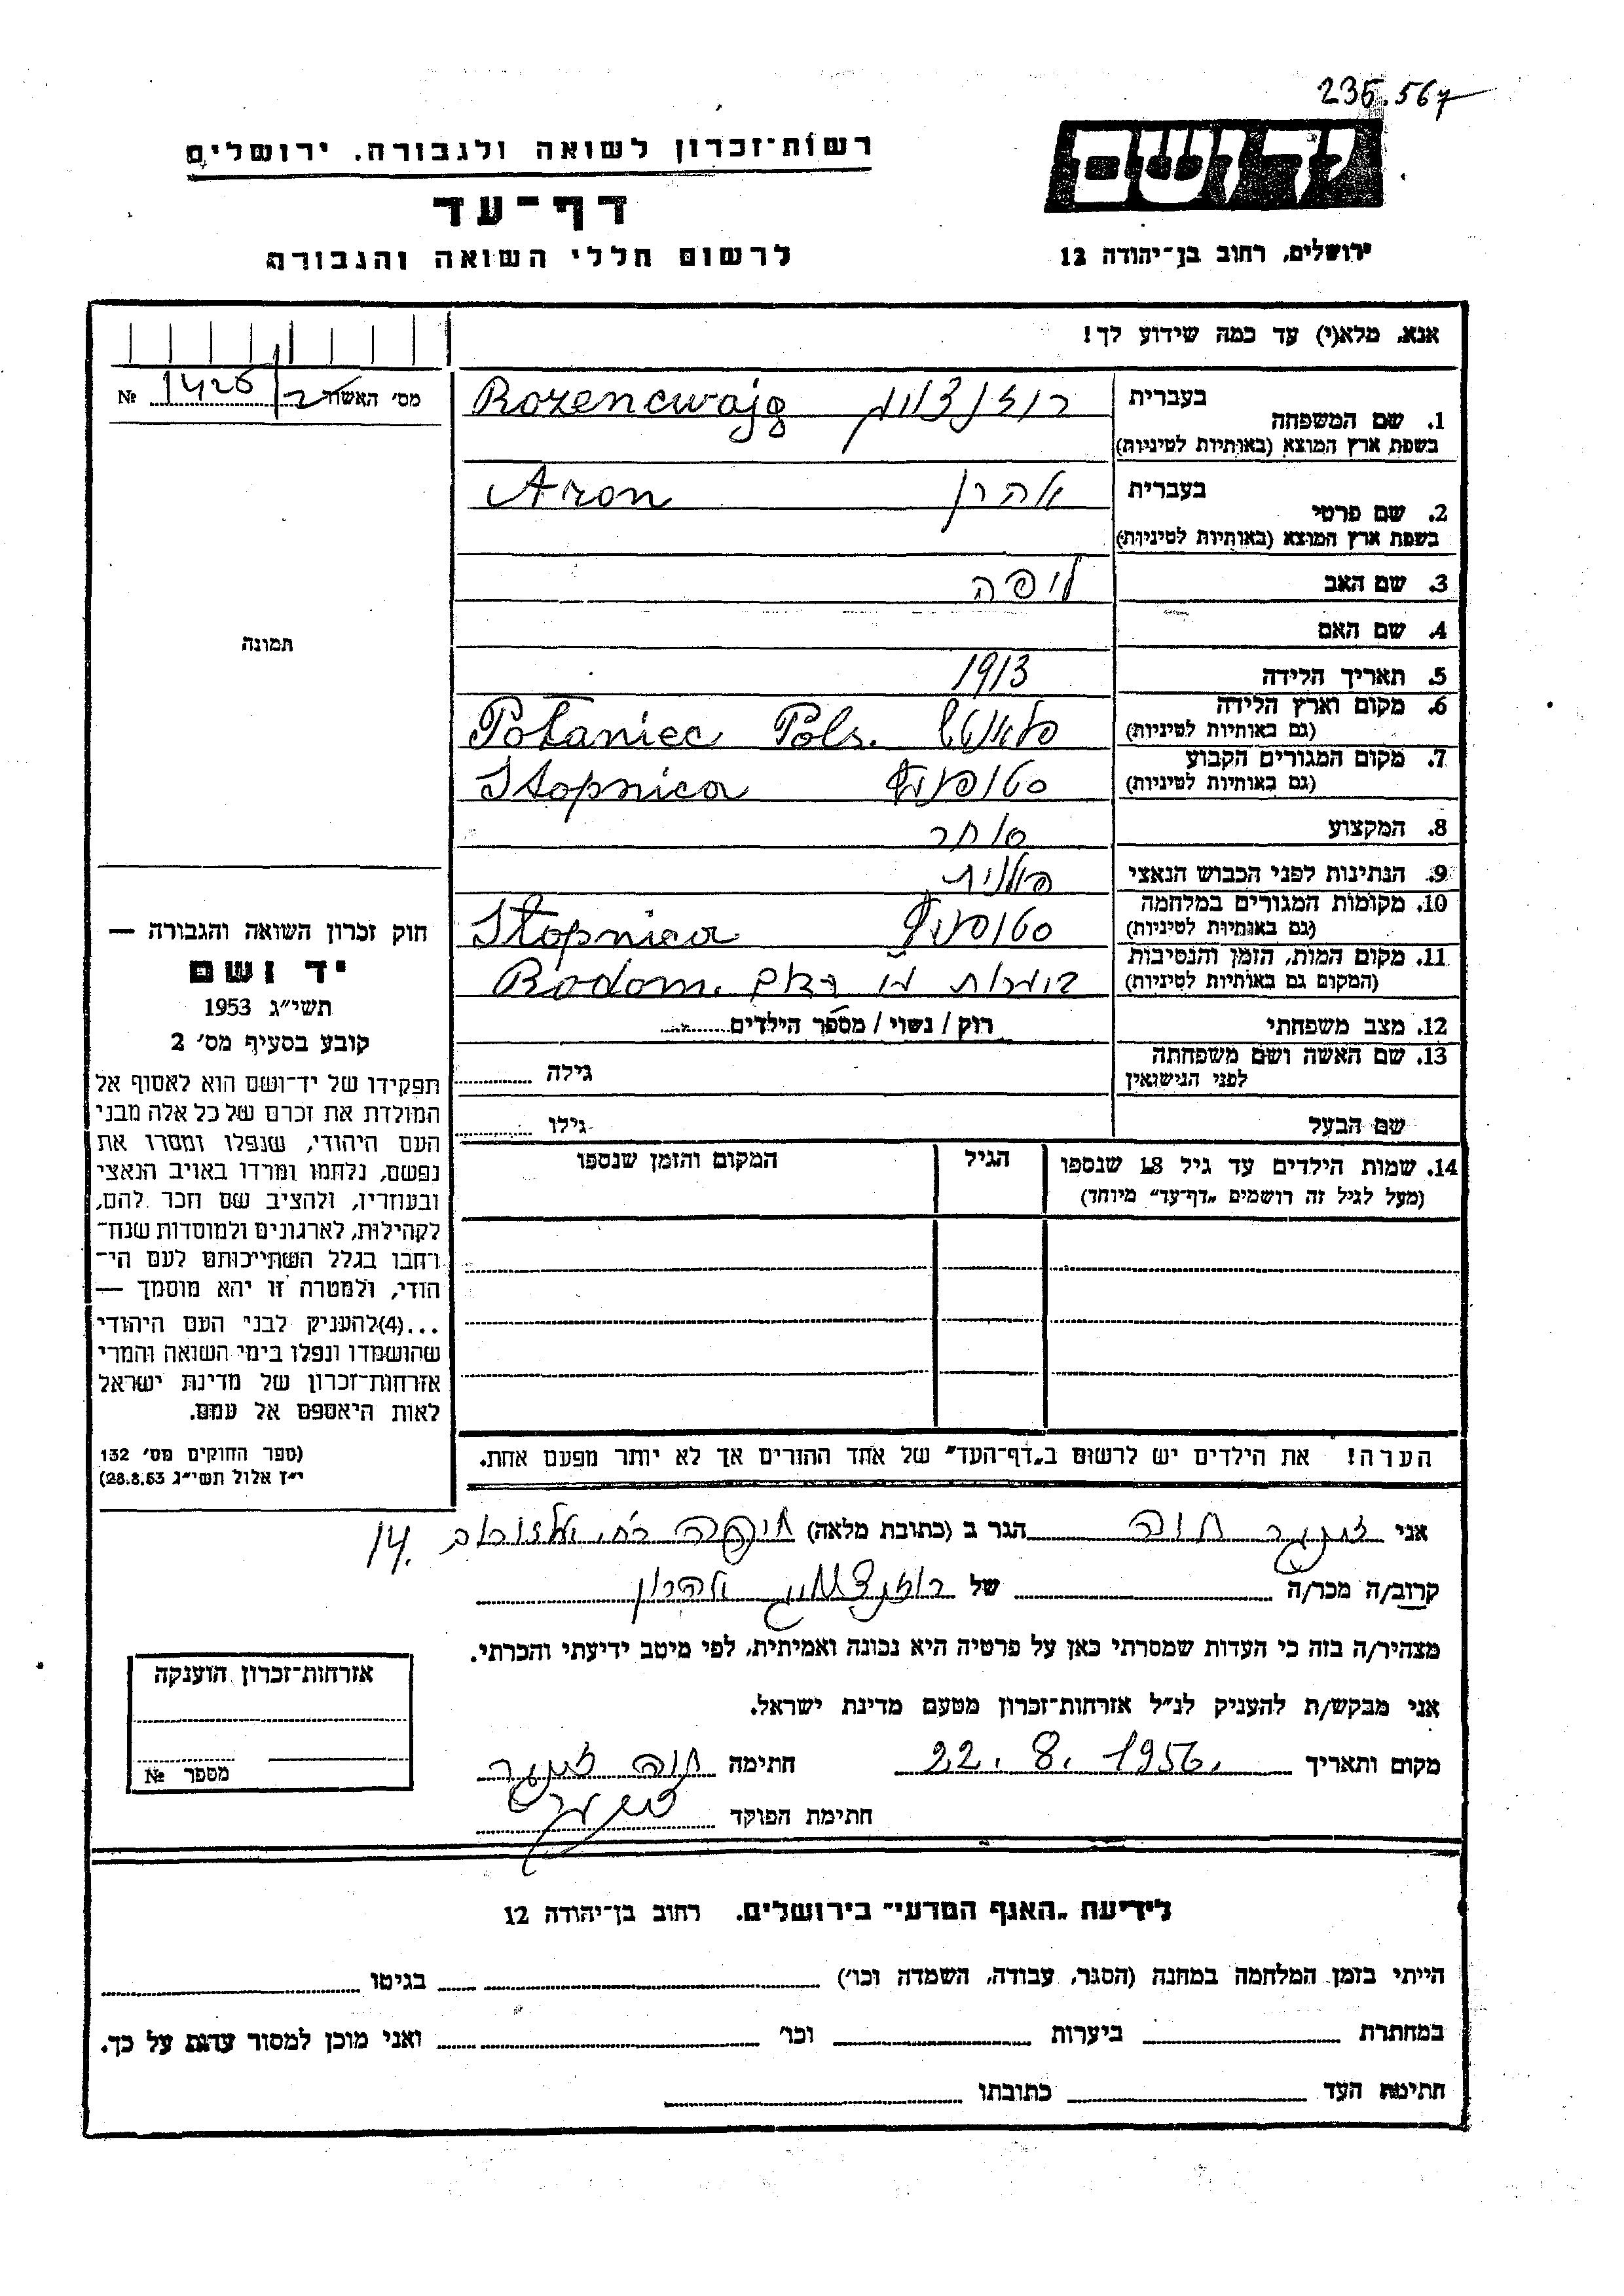 235.567
יד ושם
רשות־זכרון לשואה ולגבורה. ירושלים
דף־עד
לרשום חללי השואה והגבורה
ירושלים, רחוב בן־יהודה 12
אנא, מלא(י) עד כמה שידוע לך!
מס׳ האשור 1426 №
בעברית
1. שם המשפחה Rozencwajg
בשפת ארץ המוצא (באותיות לטיניות)
בעברית
2. שם פרטי אהרן Aron
בשפת ארץ המוצא (באותיות לטיניות)
3. שם האב ליפה
4. שם האם
5. תאריך הלידה 1913
6. מקום וארץ הלידה Połaniec Pols.
(גם באותיות לטיניות)
7. מקום המגורים הקבוע Stopnica
(גם באותיות לטיניות)
8. המקצוע סוחר
9. הנתינות לפני הכבוש הנאצי פולנית
10. מקומות המגורים במלחמה Stopnica
(גם באותיות לטיניות)
11. מקום המות, הזמן והנסיבות Radom
(המקום גם באותיות לטיניות)
12. מצב משפחתי רוק / נשוי / מספר הילדים
13. שם האשה ושם משפחתה גילה
לפני הנישואין
שם הבעל גילו
14. שמות הילדים עד גיל 18 שנספו הגיל המקום והזמן שנספו
(מעל לגיל זה רושמים „דף־עד״ מיוחד)
הערה! את הילדים יש לרשום ב„דף־העד״ של אחד ההורים אך לא יותר מפעם אחת.
תמונה
חוק זכרון השואה והגבורה —
יד ושם
תשי״ג 1953
קובע בסעיף מס׳ 2
תפקידו של יד־ושם הוא לאסוף אל
המולדת את זכרם של כל אלה מבני
העם היהודי, שנפלו ומסרו את
נפשם, נלחמו ומרדו באויב הנאצי
ובעוזריו, ולהציב שם וזכר להם,
לקהילות, לארגונים ולמוסדות שנח־
רחבו בגלל השתייכותם לעם הי־
הודי, ולמטרה זו יהא מוסמך —
...(4)להעניק לבני העם היהודי
שהושמדו ונפלו בימי השואה והמרי
אזרחות־זכרון של מדינת ישראל
לאות היאספם אל עמם.
(ספר החוקים מס׳ 132
י״ז אלול תשי״ג 28.8.53)
אני חוה הגר ב (כתובת מלאה) חיפה 14.
קרוב/ה מכר/ה של אהרון
מצהיר/ה בזה כי העדות שמסרתי כאן על פרטיה היא נכונה ואמיתית, לפי מיטב ידיעתי והכרתי.
אני מבקש/ת להעניק לנ״ל אזרחות־זכרון מטעם מדינת ישראל.
מקום ותאריך 22. 8. 1956. חתימה חוה
חתימת הפוקד
אזרחות־זכרון הוענקה
מספר №
לידיעת „האגף המדעי״ בירושלים. רחוב בן־יהודה 12
הייתי בזמן המלחמה במחנה (הסגר, עבודה, השמדה וכו׳) בגיטו
במחתרת ביערות וכו׳ ואני מוכן למסור עדות על כך.
חתימת העד כתובתו